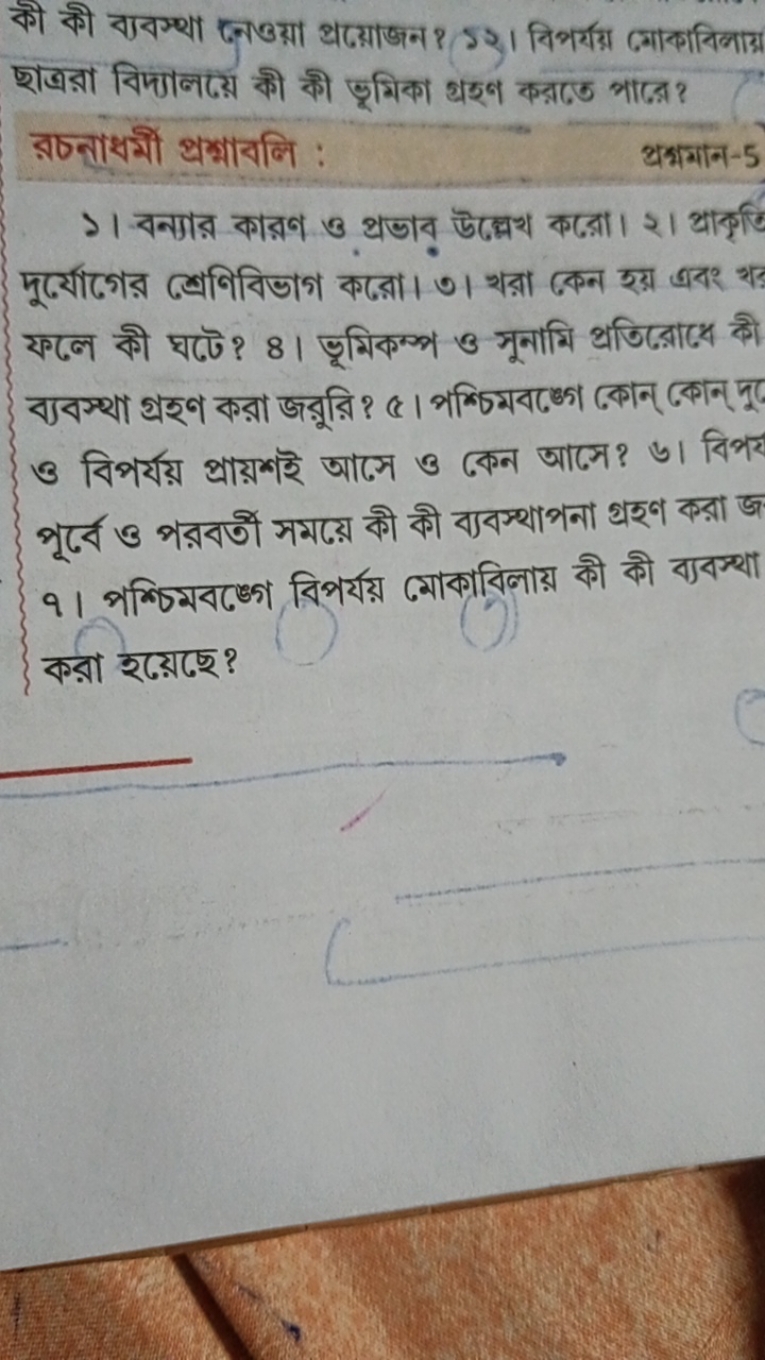 কী কী ব্যবস্থা নেওয়া প্রয়োজন? ১২। বিপর্যয় মোকাবিলায়
ছাত্ররা বিদ্যালয়ে কী কী ভূমিকা গ্রহণ করতে পারে?
রচনাধর্মী প্রশ্নাবলি : প্রশ্নমান-5
১। বন্যার কারণ ও প্রভাব উল্লেখ করো। ২।
দুর্যোগের শ্রেণিবিভাগ করো। ৩। খরা কেন হয় এবং
ফলে কী ঘটে? ৪। ভূমিকম্প ও সুনামি প্রতিরোধে কী
ব্যবস্থা গ্রহণ করা জরুরি? ৫। পশ্চিমবঙ্গে কোন্ কোন্
ও বিপর্যয় প্রায়শই আসে ও কেন আসে? ৬।
পূর্বে ও পরবর্তী সময়ে কী কী ব্যবস্থাপনা গ্রহণ করা
৭। পশ্চিমবঙ্গে বিপর্যয় মোকাবিলায় কী কী ব্যবস্থা
করা হয়েছে?